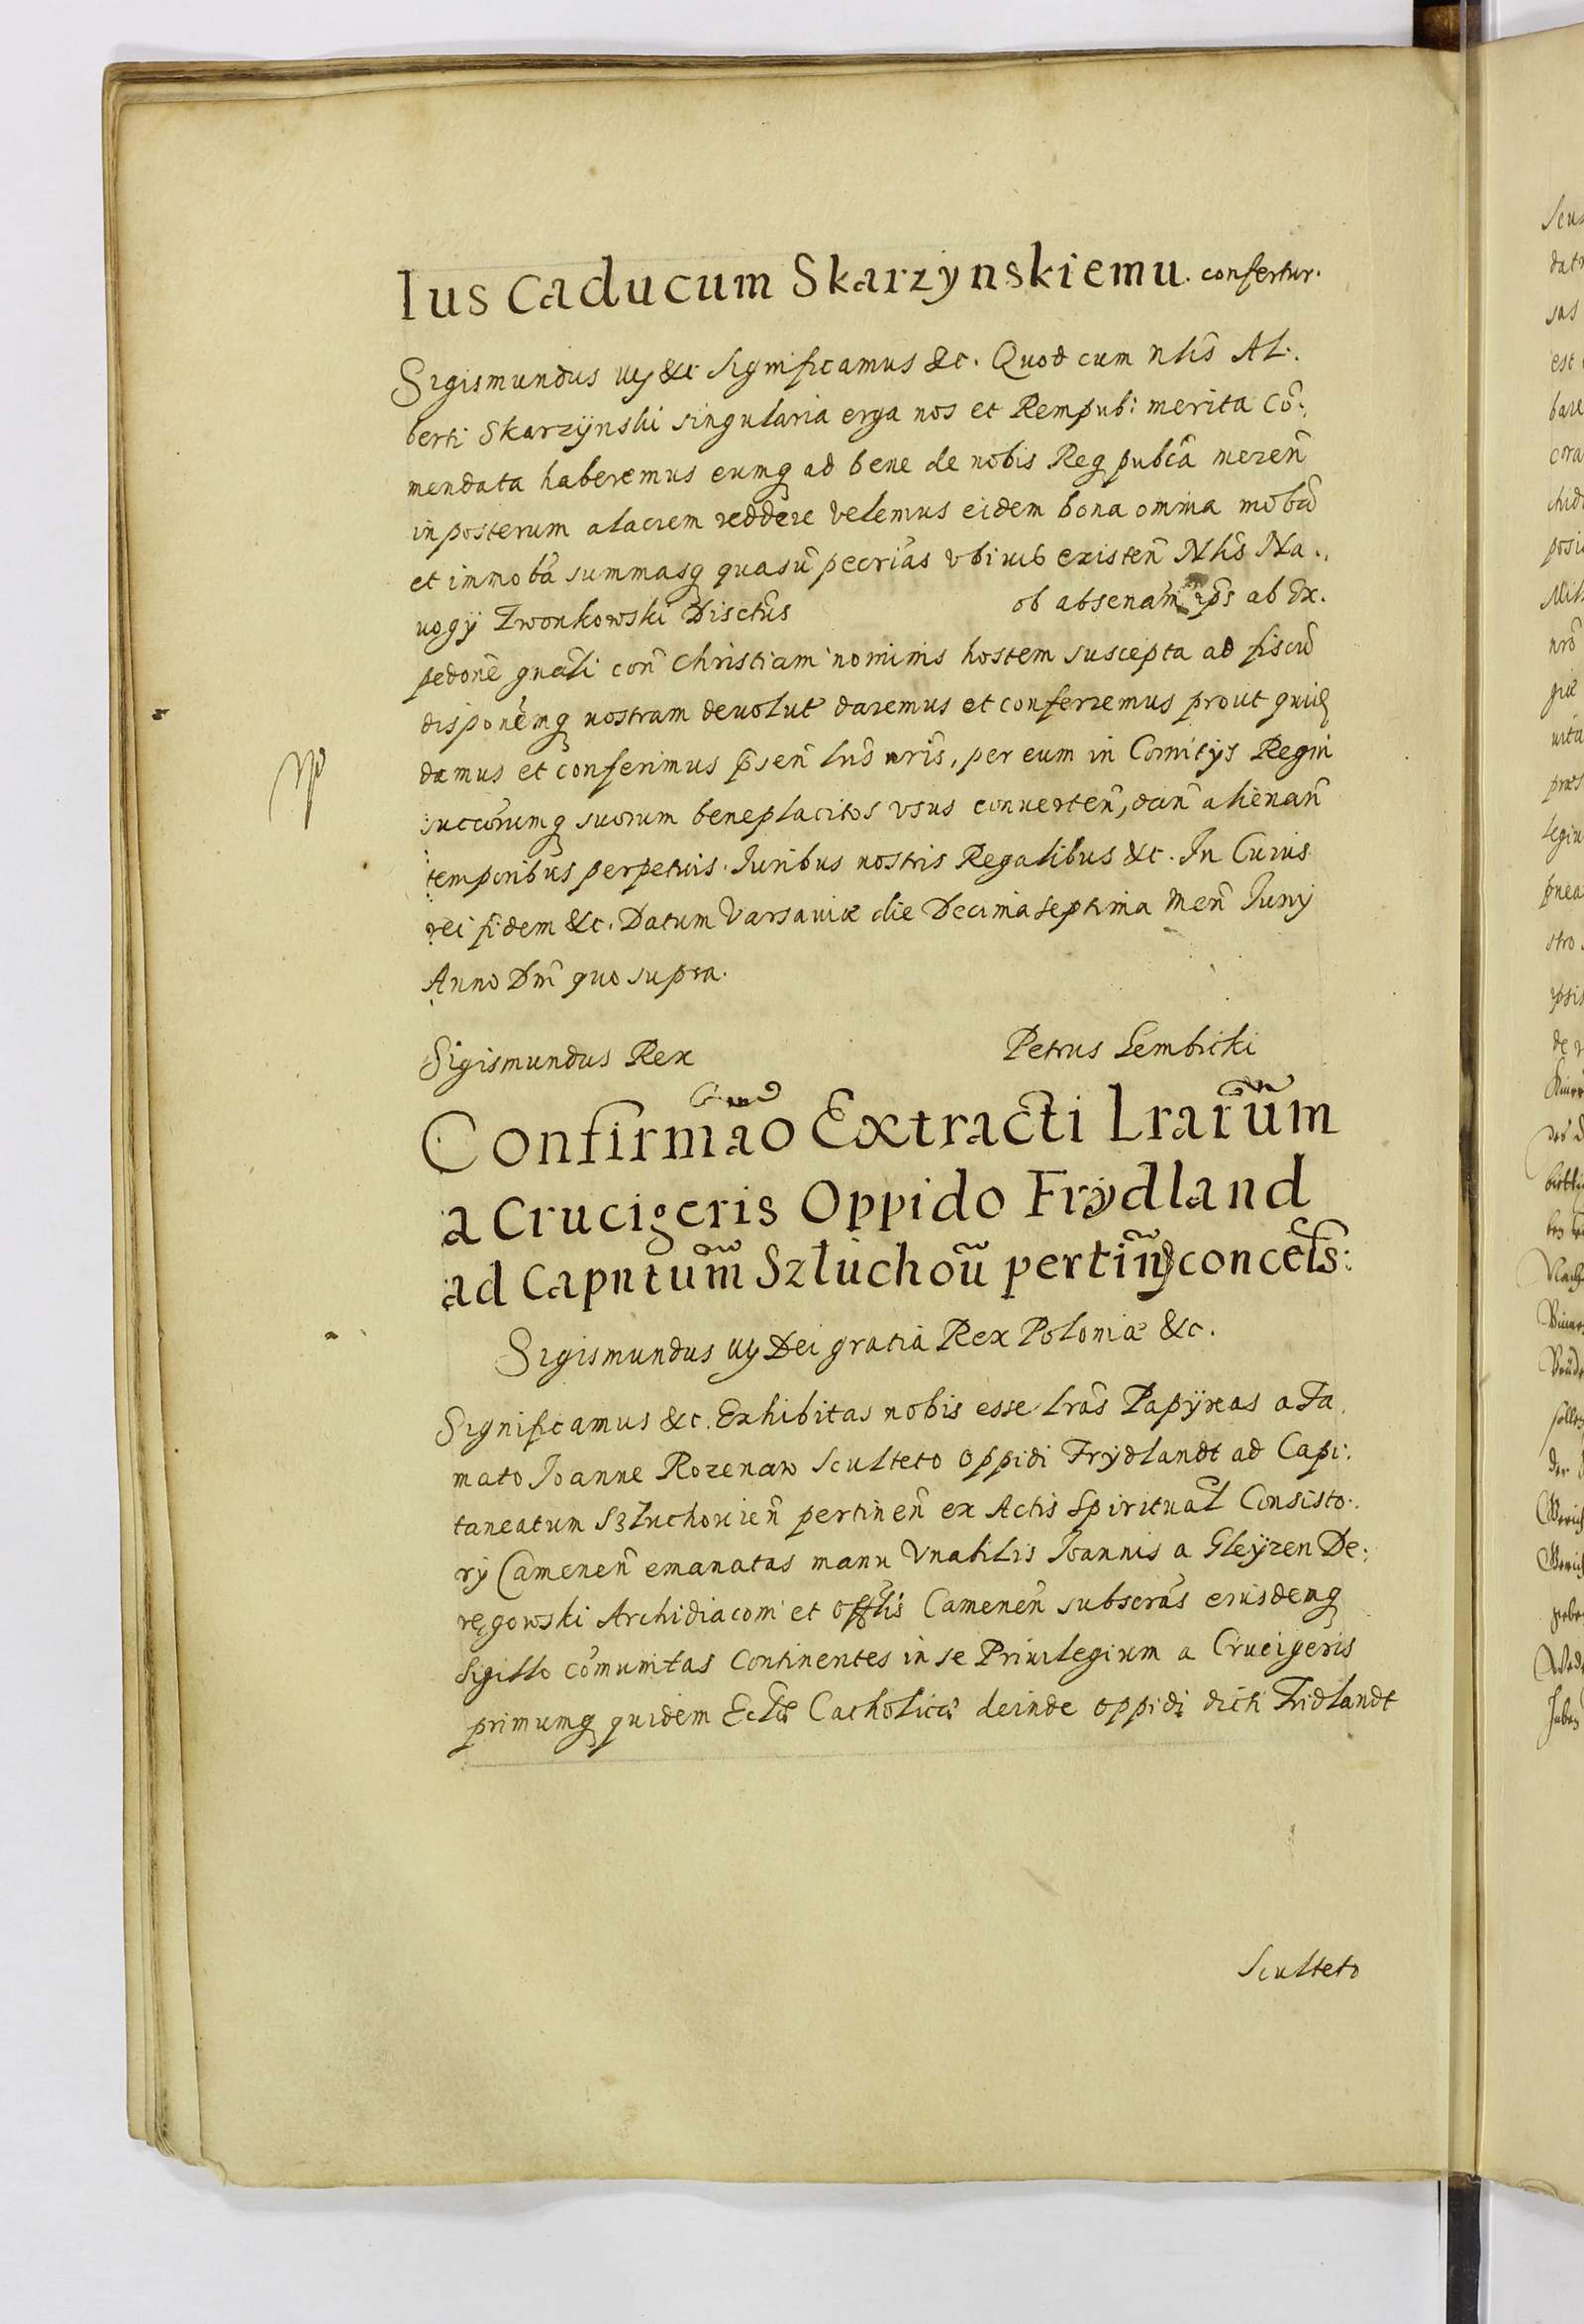 Ius Caducum Skarzynskiemu. confertur.
Sigismundus iij &c Significamus &c. Quod cum Nlis̃ Al:
berti Skarzÿnski singularia erga nos et Rempub: merita Cõ:
mendata haberemus eumq ad bene de nobis Req pubcã meren̄
in posterum alacrem reddere velemus eidem bona omnia mobã
et immobã summasq quasũ pecrias̃ vbiuis existen̄ Nlis̃ Na.,
uogÿ Zwonkowski Disctũs ob absenam̃ ips̃ ab Ex.
pedonẽ gnalĩ con̄ Christiani nominis hostem suscepta ad fiscũ
disponẽmq nostram deuolut̃ daremus et conferremus prout quidẽ
damus et conferimus p̃sen̄ lris̃ nris̃, per eum in Comitijs Regni
succõrumq suorum beneplacitos vsus conuerten̄, dan̄ alienan̄
temporibus perpetuis. Iuribus nostris Regalibus &c. In Cuius
rei fidem &c. Datum Varsauiæ die Decima septima Men̄ Iunij
Anno Dnĩ quo supra.
Sigismundus Rex Petrus Gembicki
Confirmaõ Extracti Lrarum̃
a Crucigeris Oppido Frÿdland
ad Capntum̃ Szluchoũ pertiñ concẽs:
Sigismundus iij Dei gratia Rex Poloniæ &c.
Significamus &c. Exhibitas nobis esse lras̃ Papÿreas a Fa.
mato Ioanne Rozenaw Sculteto oppidi Frÿdlandt ad Capi:
taneatum Szluchouien̄ pertinen̄ ex Actis Spiritual̃ Consisto:
rÿ Camenen̄ emanatas manu Vnabilis Ioannis a Gleÿzen De:
ręgowski Archidiaconi et Offlis̃ Camenen̄ subscras̃ eiusdemq
Sigillo cõmunitas Continentes in se Priuilegium a Crucigeris
primumq quidem Ecliæ̃ Catholicæ deinde oppidi dicti Fridlandt
Sculteto